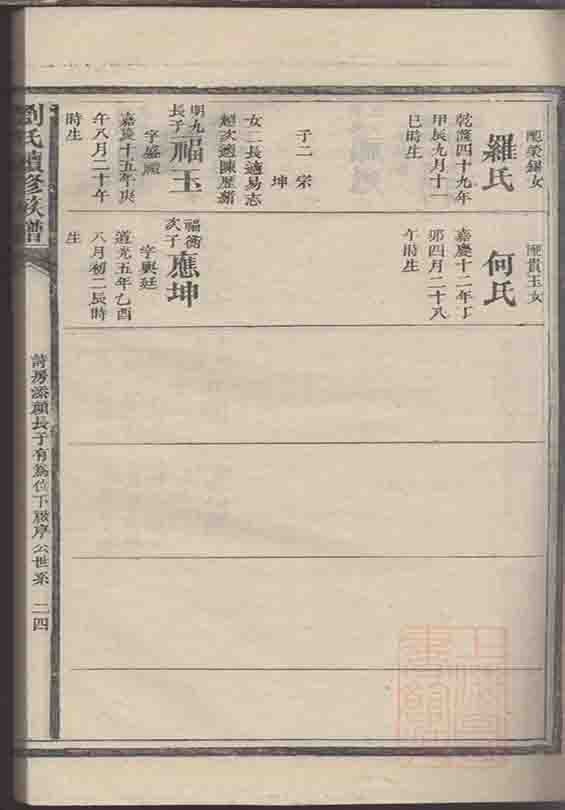 配榮錫女
羅氏
乾隆四十九年
甲辰九月十一
巳時生
子二 宗
坤
女二長適易志
次適陳
明九
長子
福玉
字盛
嘉慶十五年庚
午八月二十午
時生
配貴玉女
何氏
嘉慶十二年丁
卯四月二十八
午時生
福衡
次子
應坤
字興廷
道光五年乙酉
八月初二辰時
生
劉氏續修族譜
房添顯長子有為位下 序公世系 二四
上海
書館